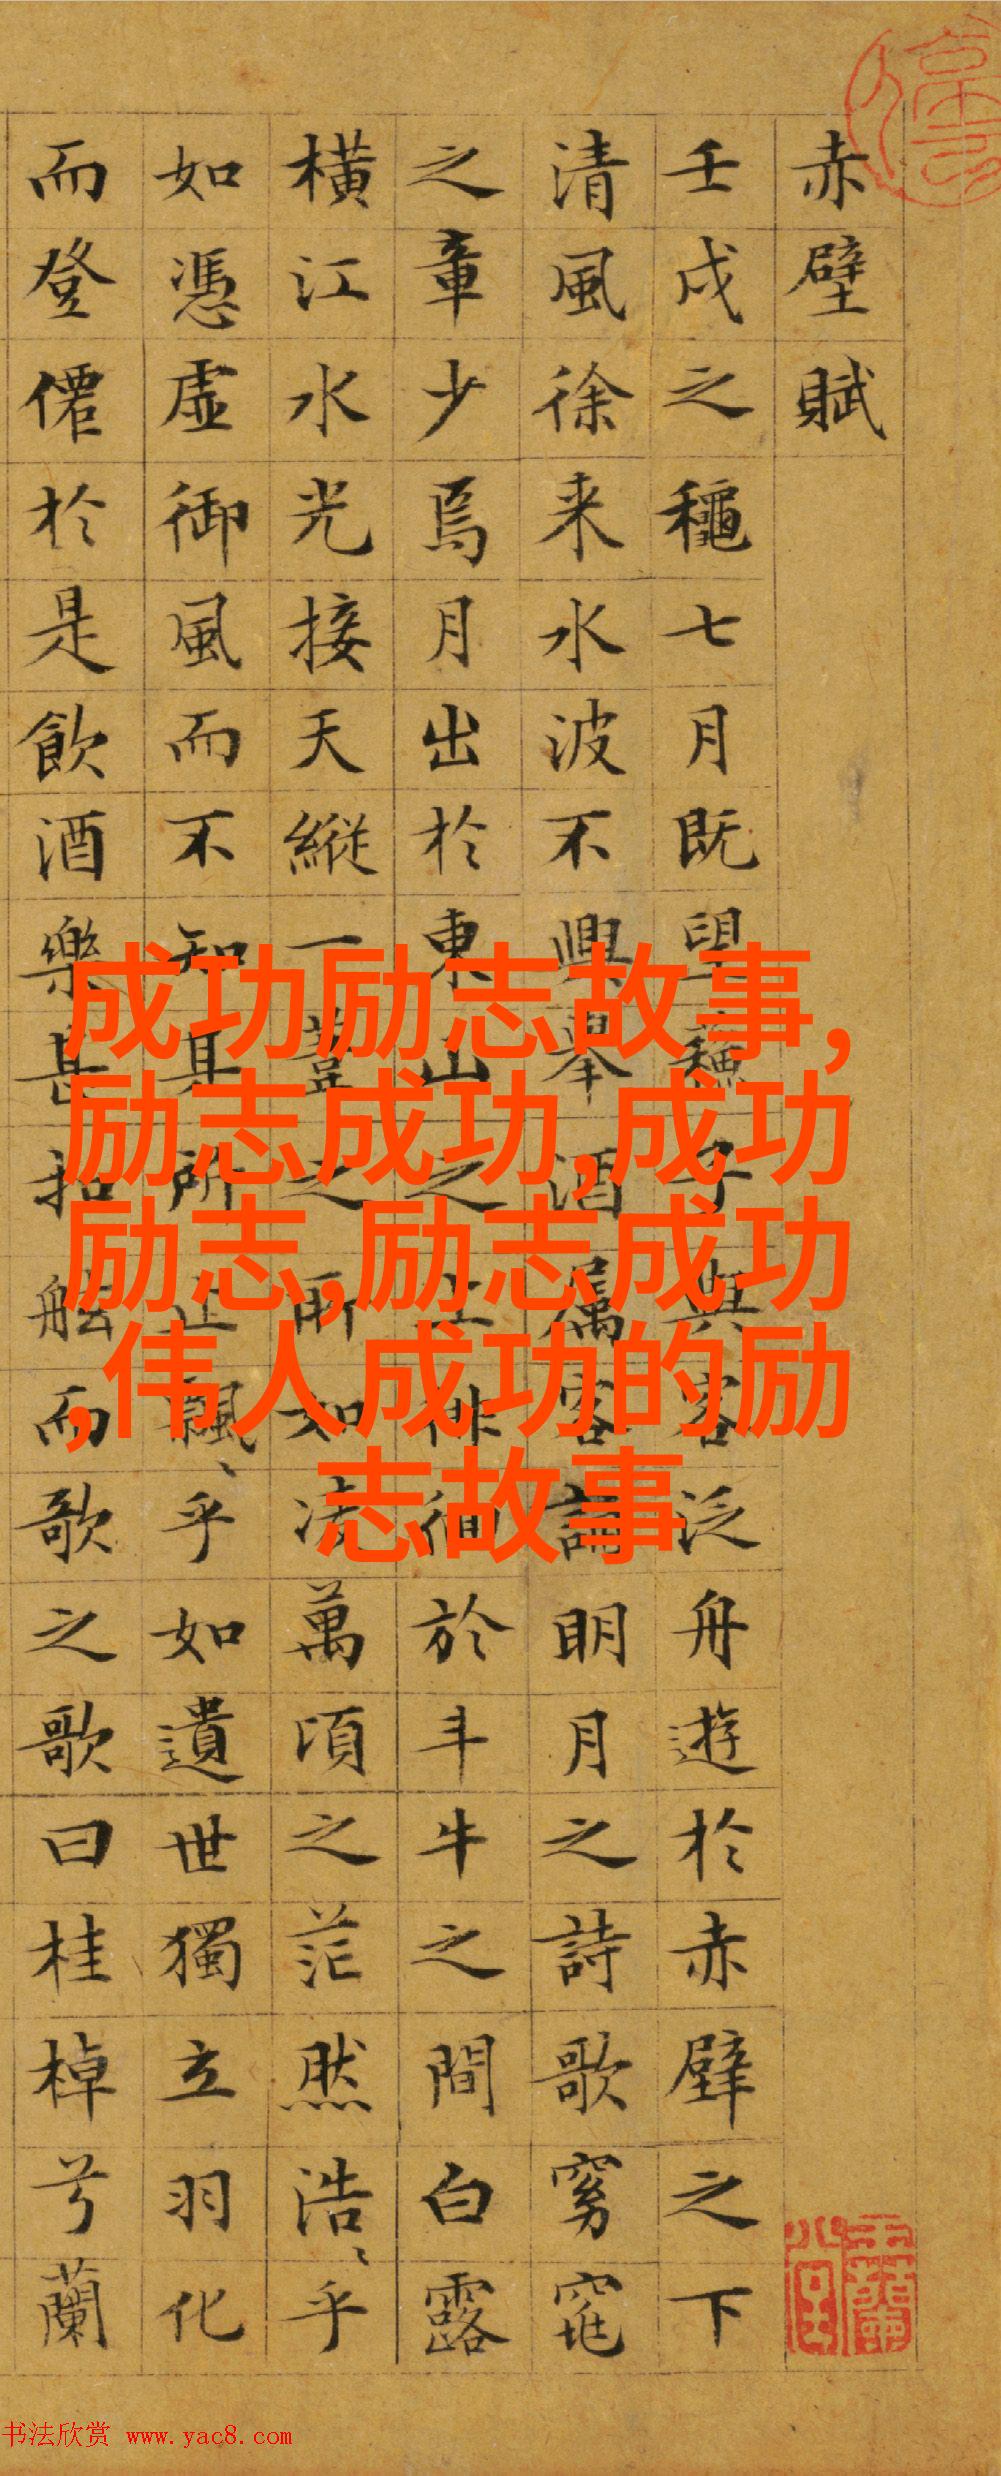 赤壁賦
壬戌之龝七月既望蘓子與客泛舟遊於赤壁之下
清風徐来水波不興舉酒属客誦明月之詩歌窈窕
之章少焉月出於東山之上徘徊於斗牛之間白露
橫江水光接天縱一葦之所如凌萬頃之茫然浩、乎
如憑虛御風而不知其所止飄、乎如遺世獨立羽化
而登僊於是飲酒樂甚扣舷而歌之歌曰桂棹兮蘭
成功励志故事,
励志成功,成功
励志,励志成功
,伟人成功的励
志故事
书法欣赏 www.yac8.com